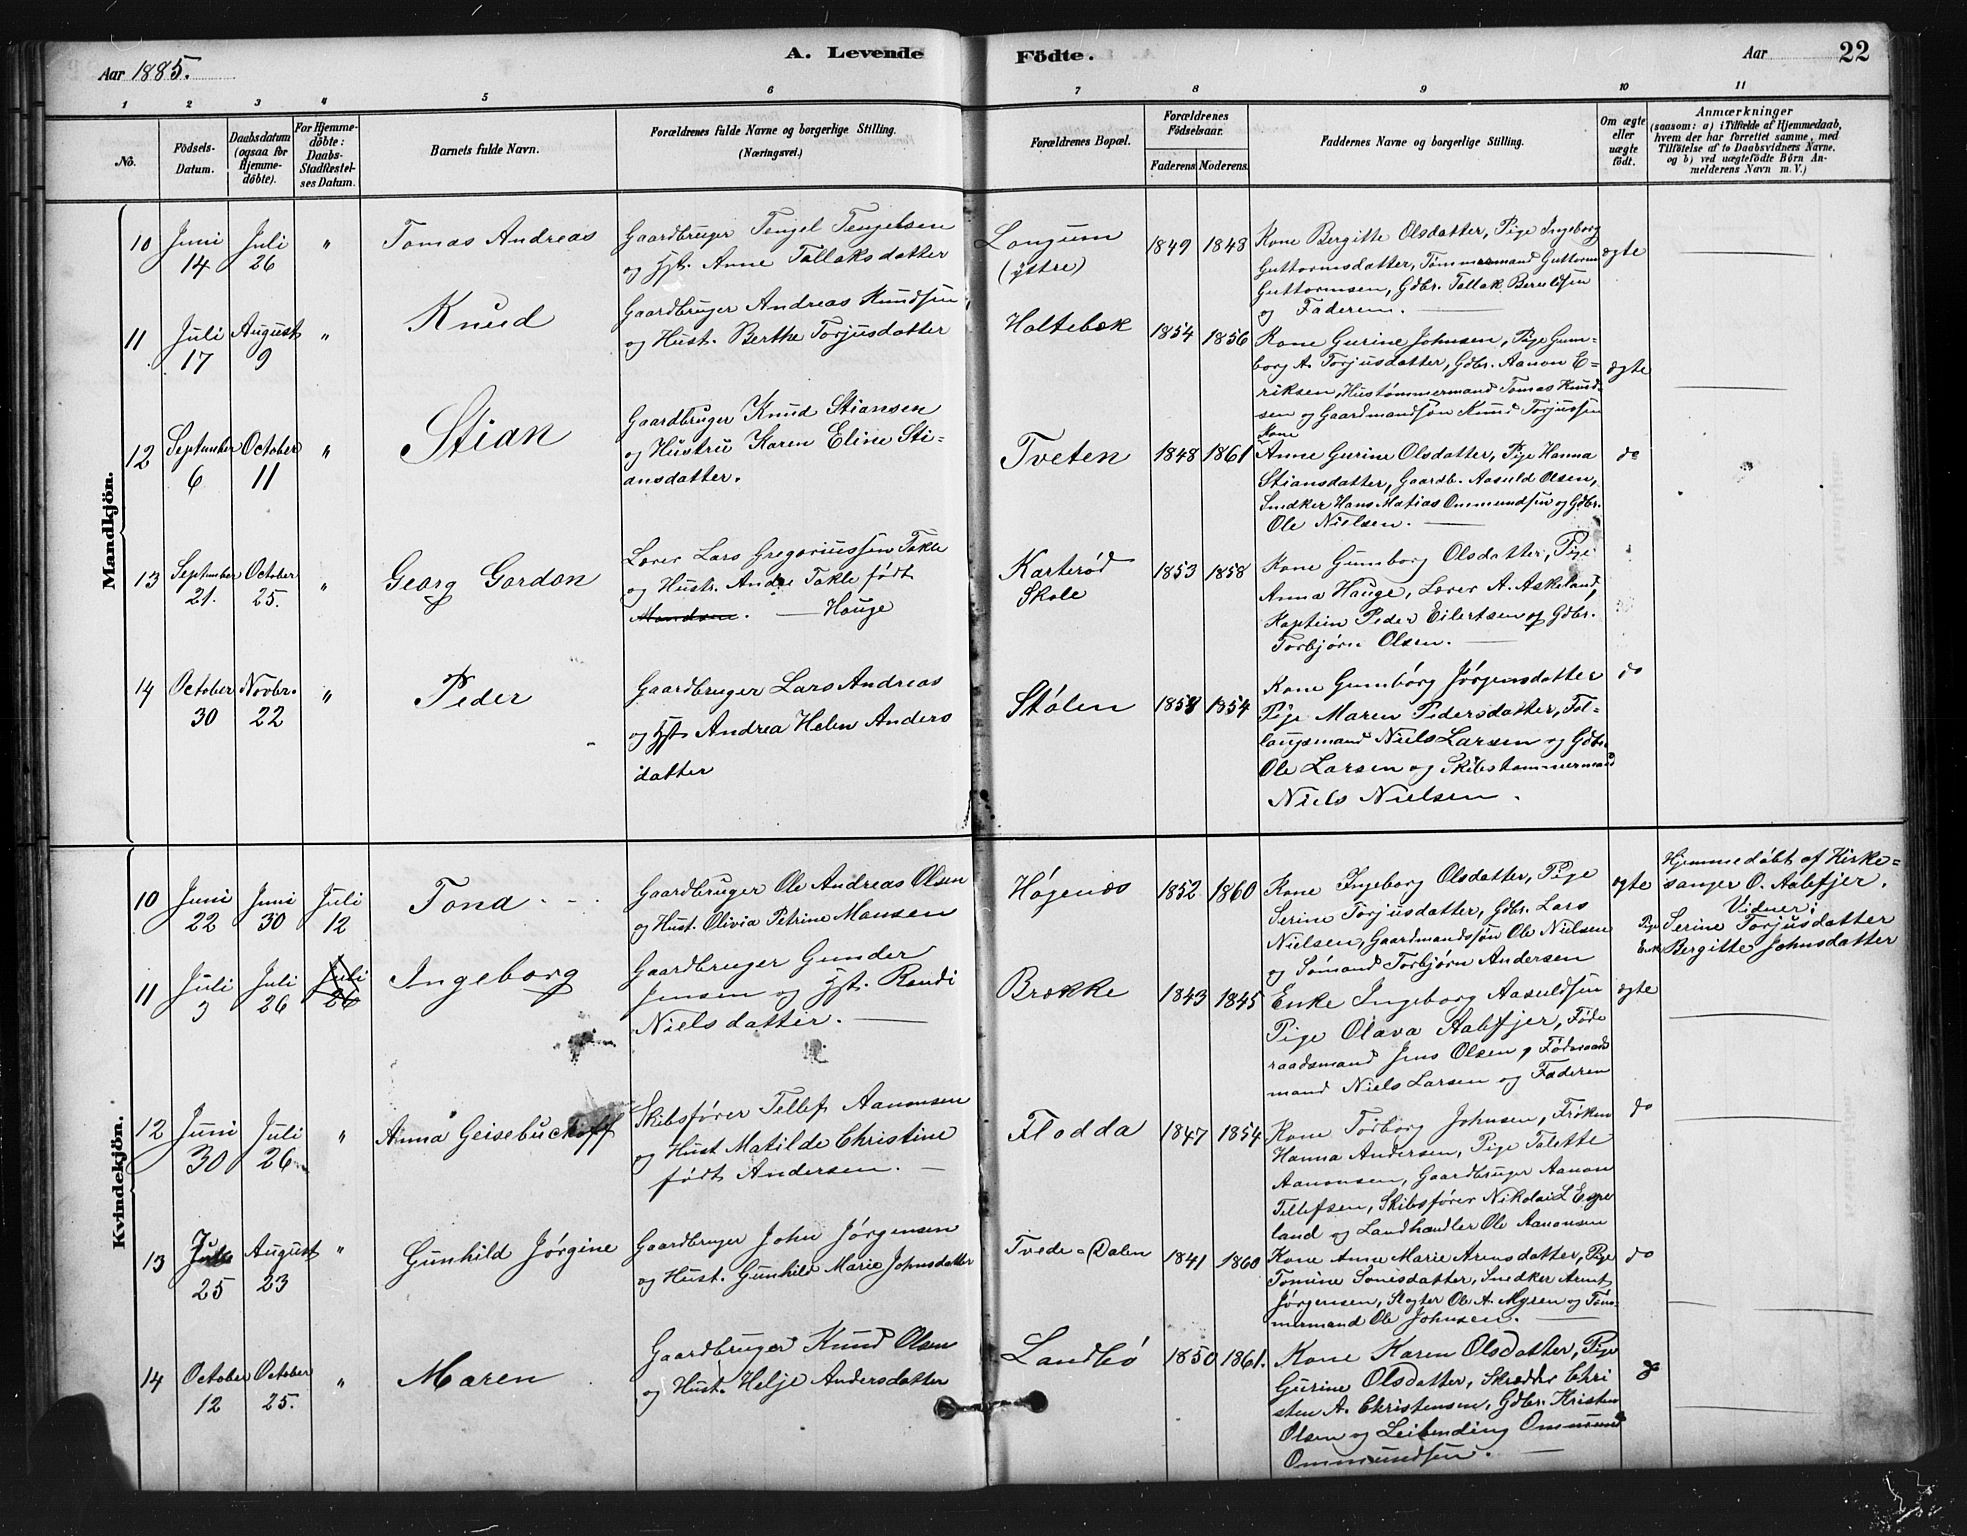 Aar 1885.
A. Levende
Födte.
Aar
22
1 2 3 4 5 6 7 8 9 10 11
No.
Födsels-
Datum.
Daabsdatum
(ogsaa for
Hjemme-
döbte).
For Hjemme-
döbte:
Daabs-
Stadfæstel-
ses Datum.
Barnets fulde Navn.
Forældrenes fulde Navne og borgerlige Stilling.
(Næringsvei.)
Forældrenes Bopæl.
Forældrenes
Födselsaar.
Faderens
Moderens
Faddernes Navne og borgerlige Stilling.
Om ægte
eller
uægte
födt.
Anmærkninger
(saasom: a) i Tilfælde af Hjemmedaab,
hvem der har forrettet samme, med
Tilföielse af to Daabsvidners Navne,
og b) ved uægtefödte Börn An-
melderens Navn m. V.)
Mandkjön.
10
Juni
14
Juli
26
"
Tomas Andreas
Gaardbruger Tengel Tengelsen
og Hst. Anne Tallaksdatter
Longum
(østre)
1849
1848
Kone Bergitte Olsdatter, Pige Ingeborg
Guttormsdatter, Tømmermand Guttorm
Guttormsen, Gdbr. Tallak Berulfsen
og Faderen.
ægte
11
Juli
17
August
9
"
Knud
Gaardbruger Andreas Knudsen
og Hust. Berthe Torjusdatter
Holtebæk
1854
1856
Kone Gurine Johnsen, Pige Gun-
borg A. Torjusdatter, Gdbr. Aanon E-
riksen, Hustømmermand Tomas Knud-
sen og Gaardmandsøn Knud Torjussen
ægte
12
September
6
October
11
"
Stian
Gaardbruger Knud Stiansen
og Hustru Karen Eline Sti-
ansdatter.
Tveten
1848
1861
Kone
Anne Gurine Olsdatter, Pige Hanna
Stiansdatter, Gaardb. Aasuld Olsen,
Snedker Hans Matias Ommundsen og Gdbr.
Ole Nielsen.
do
13
September
21.
October
25.
"
Georg Gordon
Lærer Lars Gregoriussen Takle
og Hustr. Andrea Takle født
Hauge
Karterød
Skole
1853
1858
Kone Gunborg Olsdatter, Pige
Anna Hauge, Lærer A. Askeland,
Kaptein Peder Eilertsen og Gdbr.
Torbjørn Olsen.
14
October
30
Novbr.
22
"
Peder
Gaardbruger Lars Andreas
og Hst Andrea Helen Anders
datter
Stølen
1858
1854
Kone Gunborg Jörgensdatter
Pige Maren Pedersdatter, Fol-
laugsmand Niels Larsen og Gdbr.
Ole Larsen og Skibstømmermand
Niels Nielsen.
do
Kvindekjön.
10
Juni
22
Juni
30
Juli
12
Tona
Gaardbruger Ole Andreas Olsen
og Hust. Olivia Petrine Mansen
Høgenæs
1852
1860
Kone Ingeborg Olsdatter, Pige
Serine Torjusdatter, Gdbr. Lars
Nielsen, Gaardmandssøn Ole Nielsen
og Sømand Torbjørn Andersen
ægte
Hjemmedøbt af Kirke-
sanger O. Aabefjer.
Vidner:
Pige Serine Torjusdatter
Enke Bergitte Johnsdatter
11
Juli
3
Juli
26
Juli
26
Ingeborg
Gaardbruger Gunder
Jensen og Hst. Randi
Nielsdatter.
Brække
1843
1845
Enke Ingeborg Aasuldsen
Pige Olava Aabefjer, Føde
raadsmand Jens Olsen, Føderaads
mand Niels Larsen og Faderen
ægte
12
Juni
30
Juli
26
"
Anna Geisebuchoff
Skibsfører Tellef Aanonsen
og Hust Matilde Christine
født Andersen.
Flodda
1847
1854
Kone Torborg Johnsen, Frøken
Hanna Andersen, Pige Talette
Aanonsen, Gaardbruger Aanon
Tellefsen, Skibsfører Nikolai L Espe
land og Landhandler Ole Aanonsen
do
13
25
August
23
"
Gunhild Jørgine
Gaardbruger John Jørgensen
og Hust. Gunhild Marie Johnsdatter
Tvede - Dalen
1841
1860
Kone Anne Marie Arensdatter, Pige
Tomine Sonesdatter, Snedker Arnt
Jørgensen, Slagter Ole A. Myren og Tøm-
mermand Ole Johnsen.
do
14
October
12
October
25.
"
Maren
Gaardbruger Knud Olsen
og Hust. Helje Andersdatter
Landbö
1850
1861.
Kone Karen Olsdatter, Pige
Gurine Olsdatter, Skrædder Chri
sten A. Christensen, Gdbr. Kristen
Olsen og Leilending Ommund
Ommundsen.
do